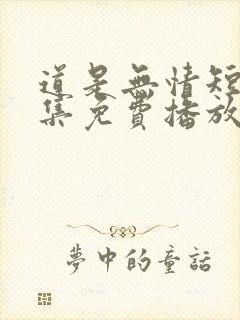 道是無情短
集免費播放
夢中的童話